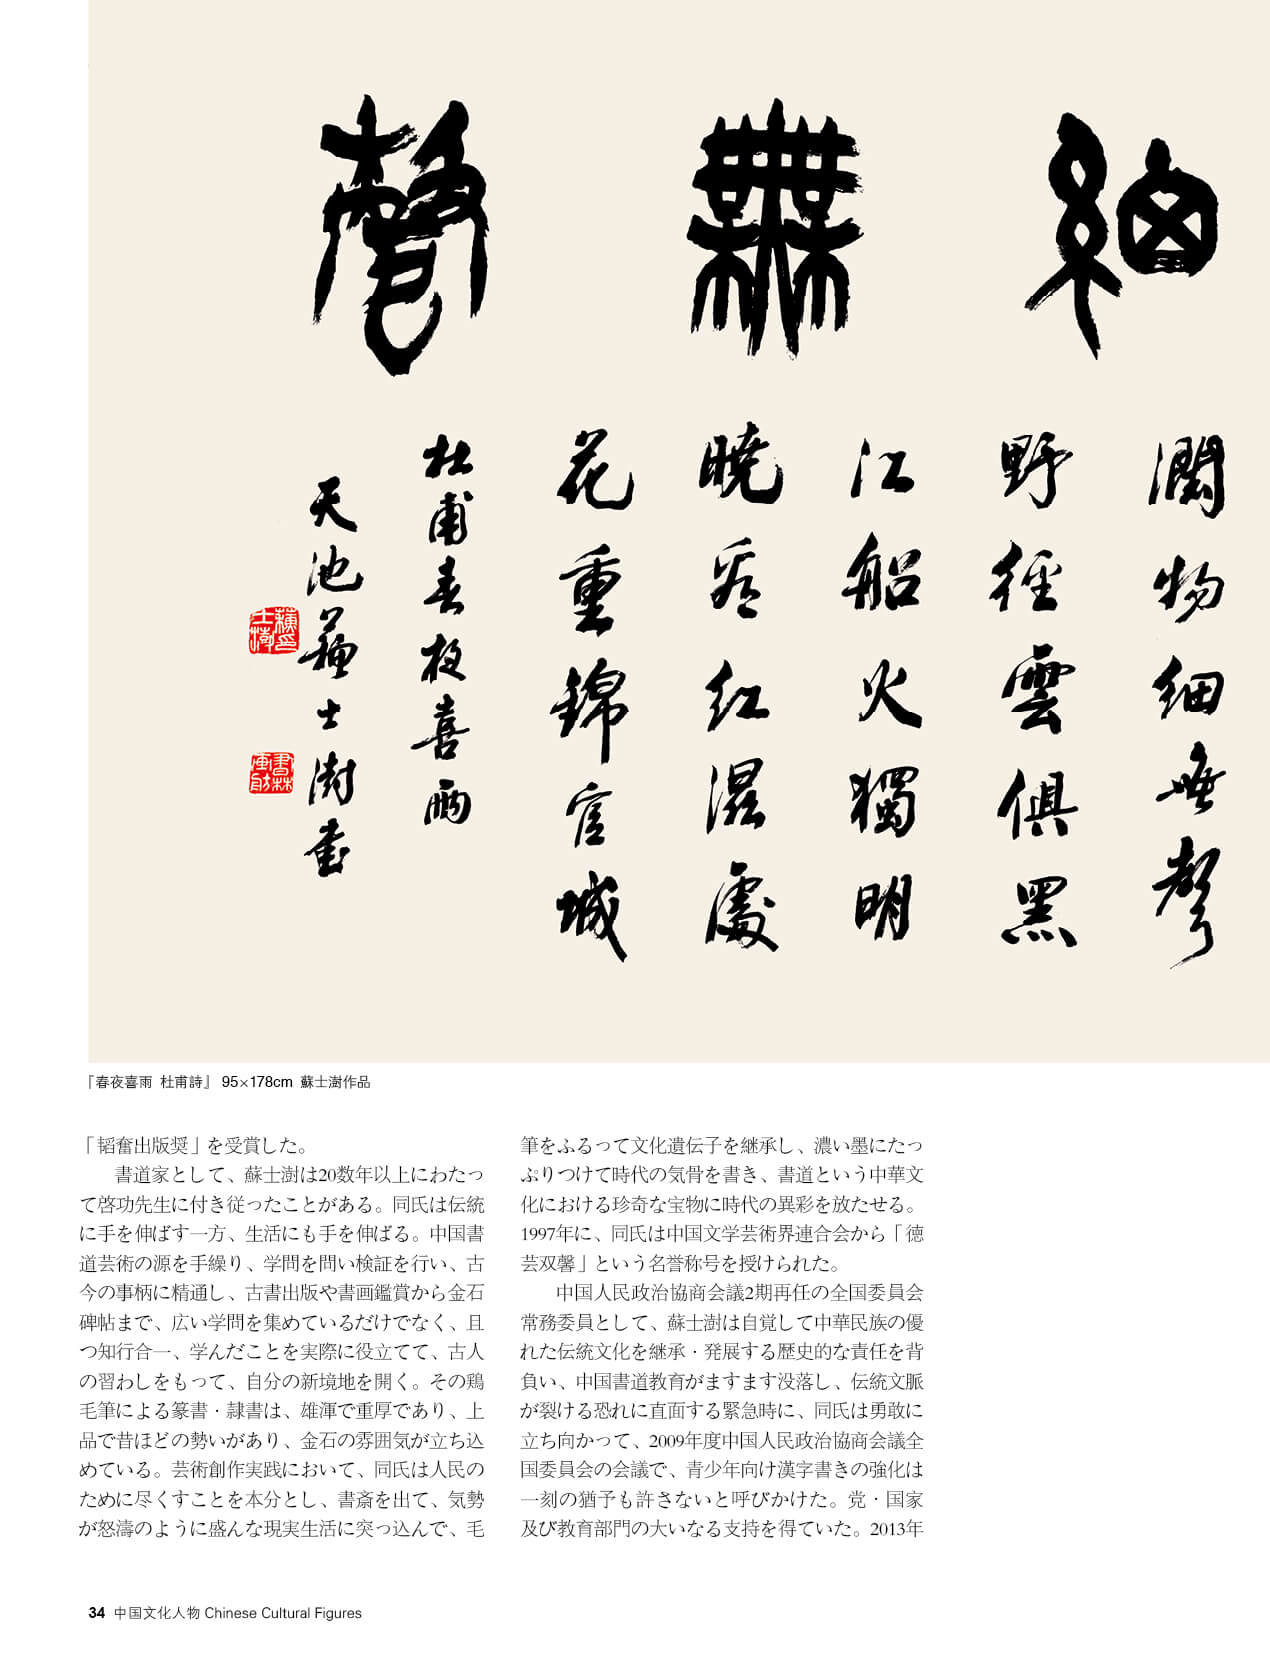 細無聲
潤物細無聲
野徑雲俱黑
江船火獨明
曉看紅濕處
花重錦官城
杜甫春夜喜雨
天池蘇士澍書
『春夜喜雨 杜甫詩』 95×178cm 蘇士澍作品
「韜奮出版奨」を受賞した。
書道家として、蘇士澍は20数年以上にわたっ
て啓功先生に付き従ったことがある。同氏は伝統
に手を伸ばす一方、生活にも手を伸ばる。中国書
道芸術の源を手繰り、学問を問い検証を行い、古
今の事柄に精通し、古書出版や書画鑑賞から金石
碑帖まで、広い学問を集めているだけでなく、且
つ知行合一、学んだことを実際に役立てて、古人
の習わしをもって、自分の新境地を開く。その鶏
毛筆による篆書・隷書は、雄渾で重厚であり、上
品で昔ほどの勢いがあり、金石の雰囲気が立ち込
めている。芸術創作実践において、同氏は人民の
ために尽くすことを本分とし、書斎を出て、気勢
が怒濤のように盛んな現実生活に突っ込んで、毛
筆をふるって文化遺伝子を継承し、濃い墨にたっ
ぷりつけて時代の気骨を書き、書道という中華文
化における珍奇な宝物に時代の異彩を放たせる。
1997年に、同氏は中国文学芸術界連合会から「徳
芸双馨」という名誉称号を授けられた。
中国人民政治協商会議2期再任の全国委員会
常務委員として、蘇士澍は自覚して中華民族の優
れた伝統文化を継承・発展する歴史的な責任を背
負い、中国書道教育がますます没落し、伝統文脈
が裂ける恐れに直面する緊急時に、同氏は勇敢に
立ち向かって、2009年度中国人民政治協商会議全
国委員会の会議で、青少年向け漢字書きの強化は
一刻の猶予も許さないと呼びかけた。党・国家
及び教育部門の大いなる支持を得ていた。2013年
34 中国文化人物 Chinese Cultural Figures